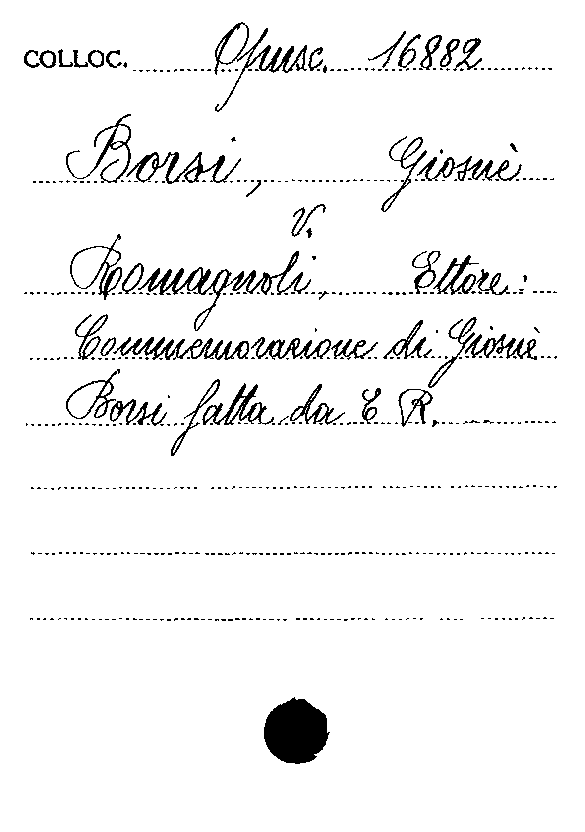 COLLOC. Opusc. 16882
Borsi, Giosuè
V.
Romagnoli, Ettore:
Commemorazione di Giosuè
Borsi fatta da E R. ...